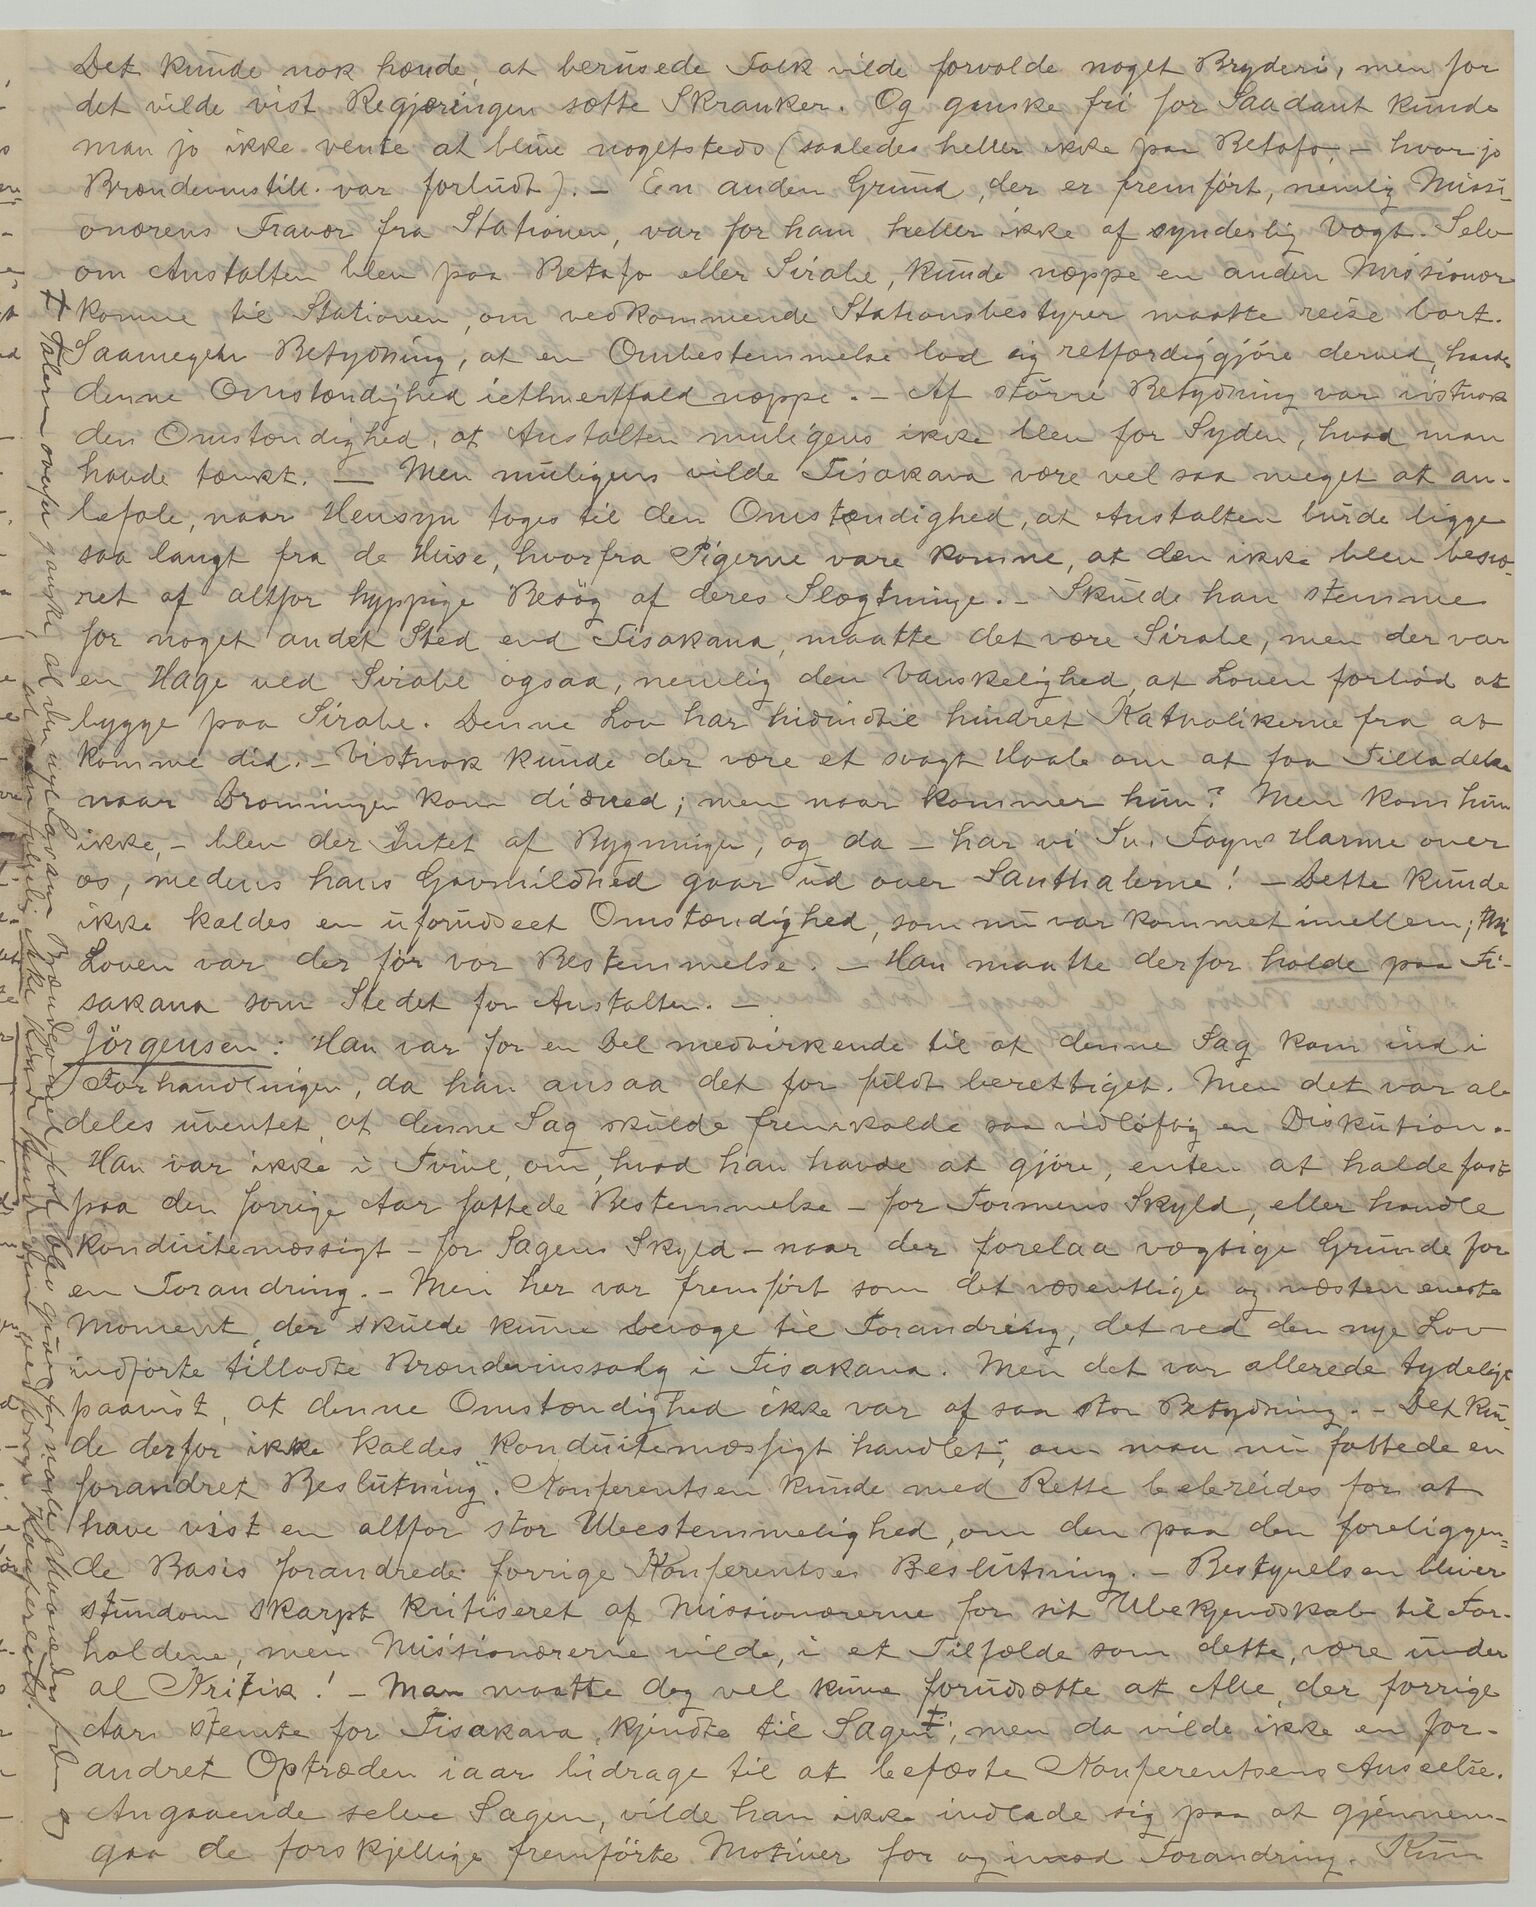 Det kunde nok hænde, at berusede Folk vilde forvolde noget Bryderi, men for
det vilde vist Regjeringen sætte Skranker. Og ganske fri for Saadant kunde
man jo ikke vente at blive nogetsteds (saaledes heller ikke paa Betafo, - hvor jo
Brændevinstill. var forbudt). - En anden Grund, der er fremført, nemlig Missi-
onærens Fravær fra Stationen, var for ham heller ikke af synderlig Vægt. Selv
om Anstalten blev paa Betafo eller Sirabe, kunde næppe en anden Missionær
komme til Stationen, om vedkommende Stationsbestyrer maatte reise bort.
Saamegen Betydning, at en Ombestemmelse lod sig retfærdiggjøre derved, havde
denne Omstændighed iethvertfald næppe. - Af større Betydning var vistnok
den Omstændighed, at Anstalten muligens ikke blev for Syden, hvad man
havde tænkt. - Men muligens vilde Fisakana være vel saa meget at an-
befale, naar Hensyn toges til den Omstændighed, at Anstalten burde ligge
saa langt fra de Huse, hvorfra Pigerne vare komne, at den ikke blev besvæ-
ret af altfor hyppige Besøg af deres Slægtninge. - Skulde han stemme
for noget andet Sted end Fisakana, maatte det være Sirabe, men der var
en Hage ved Sirabe ogsaa, nemlig den Vanskelighed, at Loven forbød at
bygge paa Sirabe. Denne Lov har hidindtil hindret Katholikerne fra at
komme did. - Vistnok kunde der være et svagt Haab om at faa Tilladelse
naar Dronningen kom didned; men naar kommer hun? Men kom hun
ikke, - blev der Intet af Bygningen, og da - har vi Sv. Foyns Harme over
os, medens hans Gavmildhed gaar ud over Santhalerne! - Dette kunde
ikke kaldes en uforudseet Omstændighed, som nu var kommet imellem; thi
Loven var der før vor Bestemmelse. - Han maatte derfor holde paa Fi-
sakana som Stedet for Anstalten. -
Jörgensen: Han var for en Del medvirkende til at denne Sag kom ind i
Forhandlingen, da han ansaa det for fuldt berettiget. Men det var al-
deles uventet, at denne Sag skulde fremkalde saa vidløftig en Diskution. -
Han var ikke i Tvivl, om, hvad han havde at gjøre, enten at holde fast
paa den forrige Aar fattede Bestemmelse - for Formens Skyld, eller handle
konduitemæssigt - for Sagens Skyld - naar der forelaa vægtige Grunde for
en Forandring. - Men her var fremført som det væsentlige og næsten eneste
Moment, der skulde kunne bevæge til Forandring, det ved den nye Lov
indførte tilladte Brændevinssalg i Fisakana. Men det var allerede tydeligt
paavist, at denne Omstændighed ikke var af saa stor Betydning. - Det kun-
de derfor ikke kaldes "konduitemæssigt handlet", om man nu fattede en
forandret Beslutning. Konferentsen kunde med Rette bebreides for at
have vist en altfor stor Ubestemmelighed, om den paa den foreliggen-
de Basis forandrede forrige Konferentses Beslutning. - Bestyrelsen bliver
stundom skarpt kritiseret af Missionærerne for sit Ubekjendskab til For-
holdene, men Missionærerne vilde, i et Tilfælde som dette, være under
al Kritik! - Man maatte dog vel kunne forudsætte at Alle, der forrige
Aar stemte for Fisakana, kjendte til Sagen +; men da vilde ikke en for-
andret Optræden iaar bidrage til at befæste Konferentsens Anseelse.
Angaaende selve Sagen, vilde han ikke indlade sig paa at gjennem-
gaa de forskjellige fremførte Motiver for og imod Forandring. Kun
+ Taleren oversaa ganske, at den nye Lov om Brændevinet først blev givet for nogle Maaneder siden og
at den følgelig ikke kunde kjendes ved forrige Konferents.